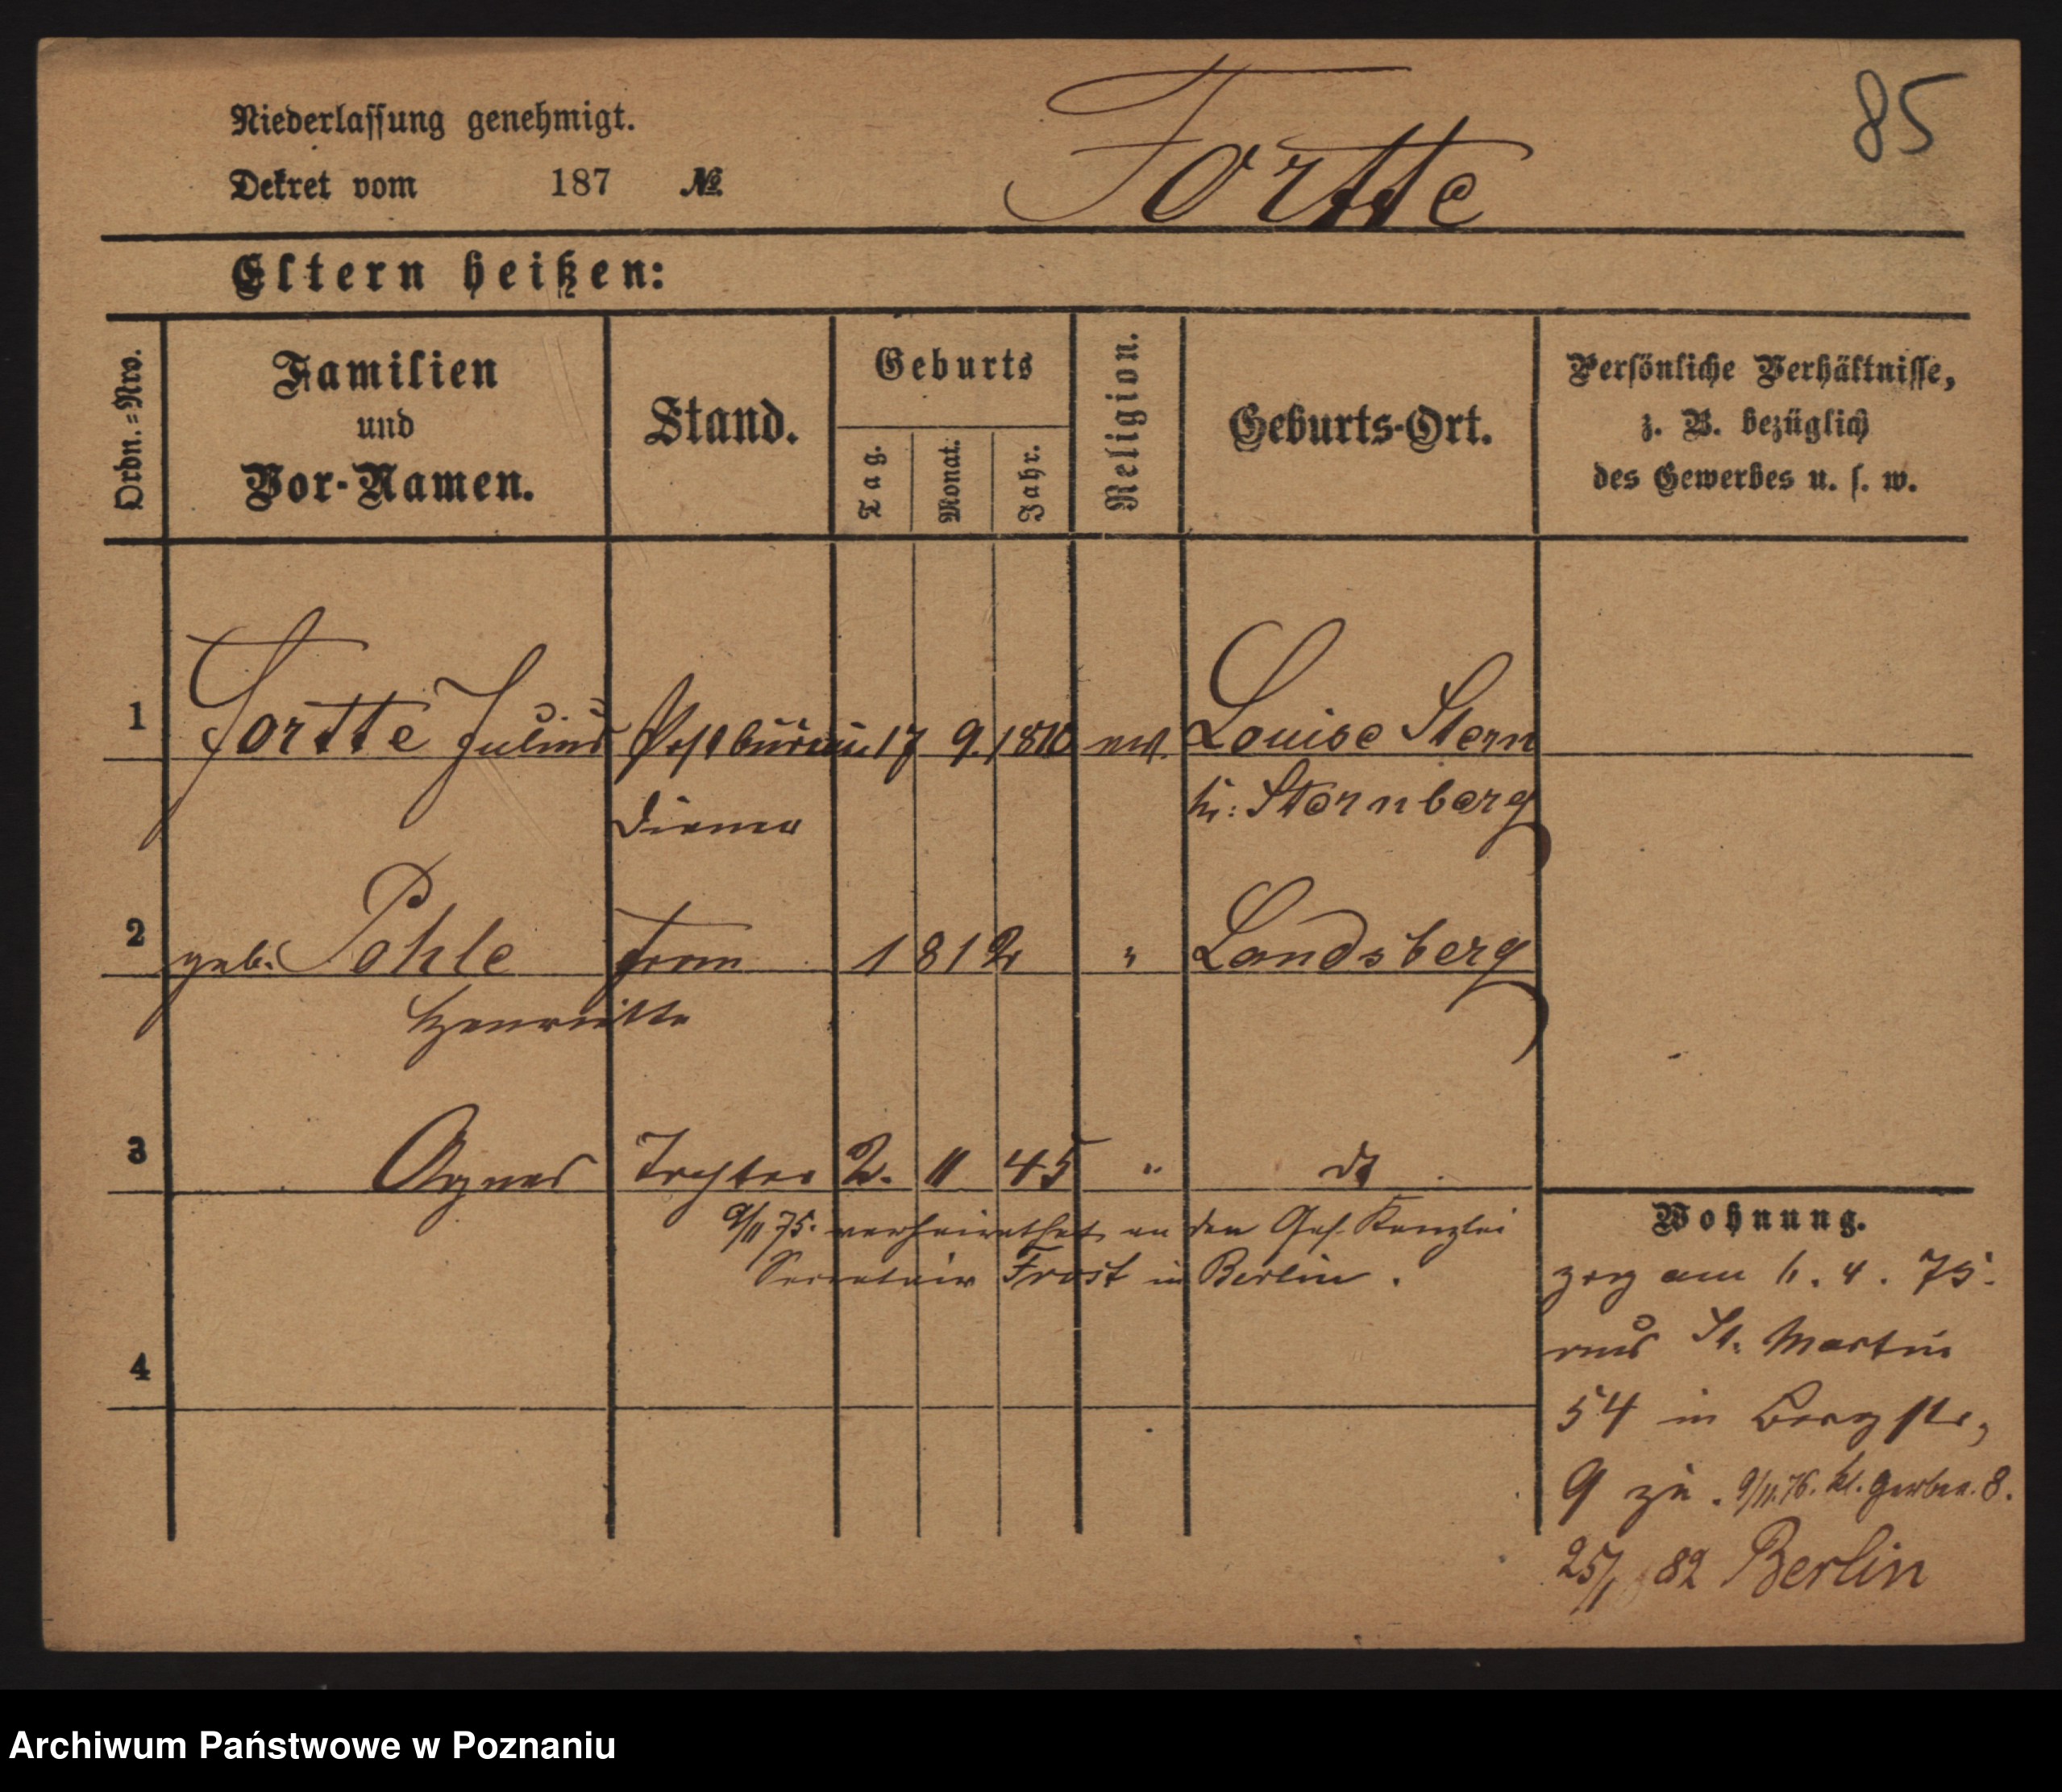 85
Niederlassung genehmigt.
Dekret vom 187 № Fortte
Eltern heißen:
Ordn.=Nro.
Familien
und
Vor-Namen.
Stand.
Geburts
Tag.
Monat.
Jahr.
Religion.
Geburts-Ort.
Persönliche Verhältnisse,
z. B. bezüglich
des Gewerbes u. s. w.
1 Fortte Julius Postbüreau 17 9. 1810 ev. Louise Stern
diener Sternberg
2 geb. Pohle Frau 1812 " Landsberg
Henriette
3 Agnes Tochter 2. 11 45 " dt
9/11 75. verheirathet an den Geh. Kanzlei
Secretair Frost in Berlin.
4
Wohnung.
zog am 4. 75.
aus St. Martin
54 in Bergstr,
9 zu. 9/11.76. kl. Gerber. 8.
25/1 82 Berlin
Archiwum Państwowe w Poznaniu